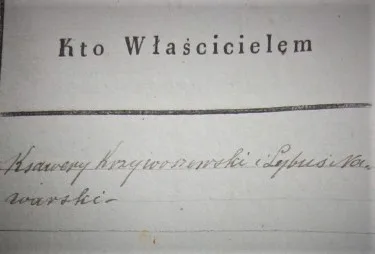 Kto Właścicielęm
Ksawery Krzywoszewski i Leybuś Na-
warski-